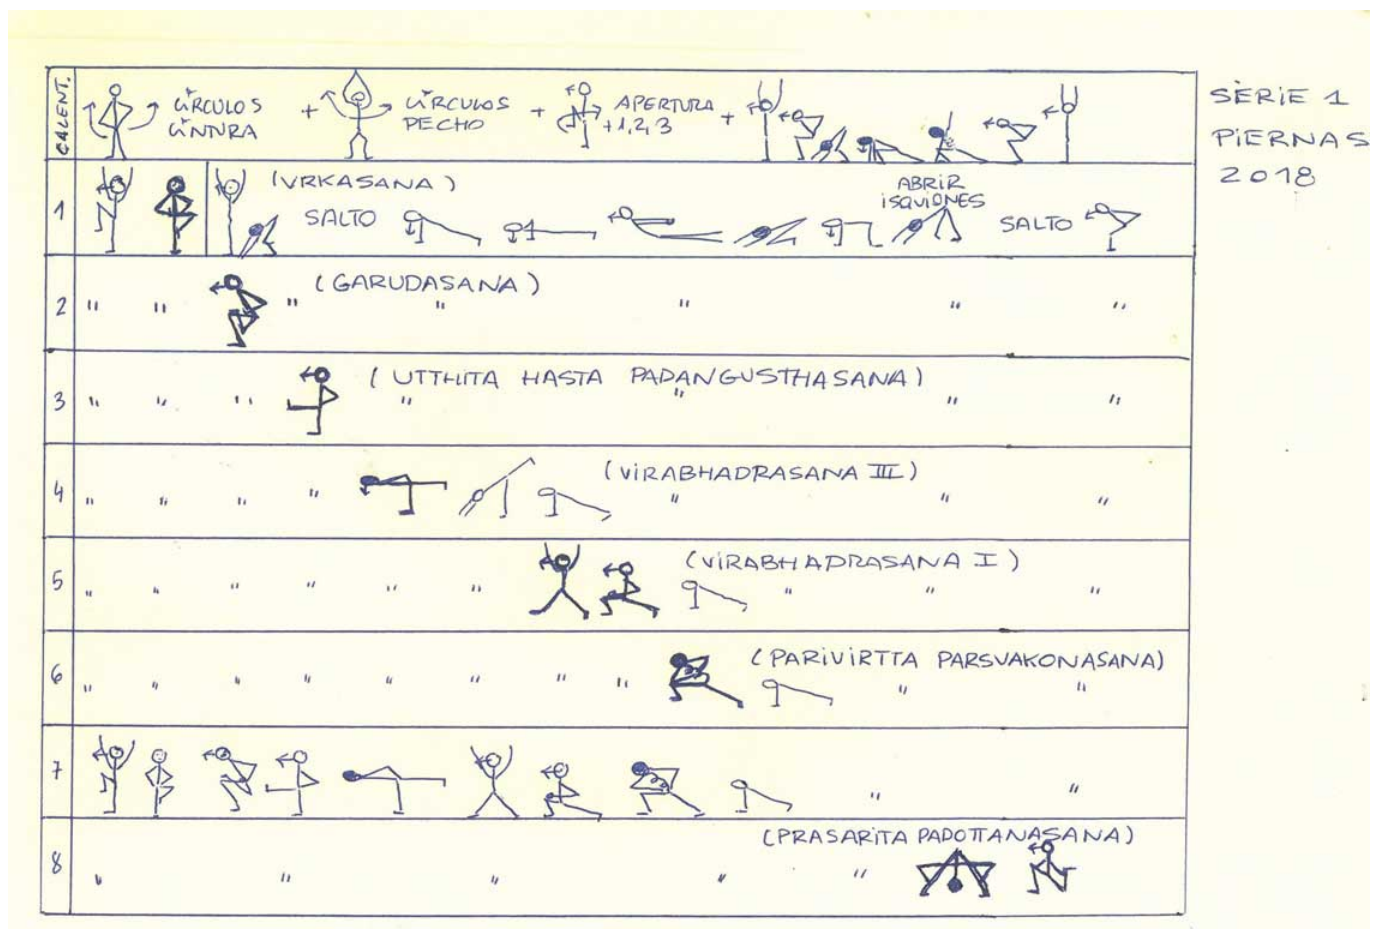 SÈRIE 1
PIERNAS
2018
CALENT.
CÍRCULOS CINTURA
+
CÍRCULOS PECHO
+
APERTURA
+1,2,3
+
1
(VRKASANA)
SALTO
ABRIR
ISQUIONES
SALTO
2 " " " (GARUDASANA) " " " "
3 " " " (UTTHITA HASTA PADANGUSTHASANA) " " " "
4 " " " " (VIRABHADRASANA III) " " "
5 " " " " " " (VIRABHADRASANA I) " " "
6 " " " " " " " " (PARIVIRTTA PARSVAKONASANA) " "
7 " "
8 " " " " " (PRASARITA PADOTTANASANA)